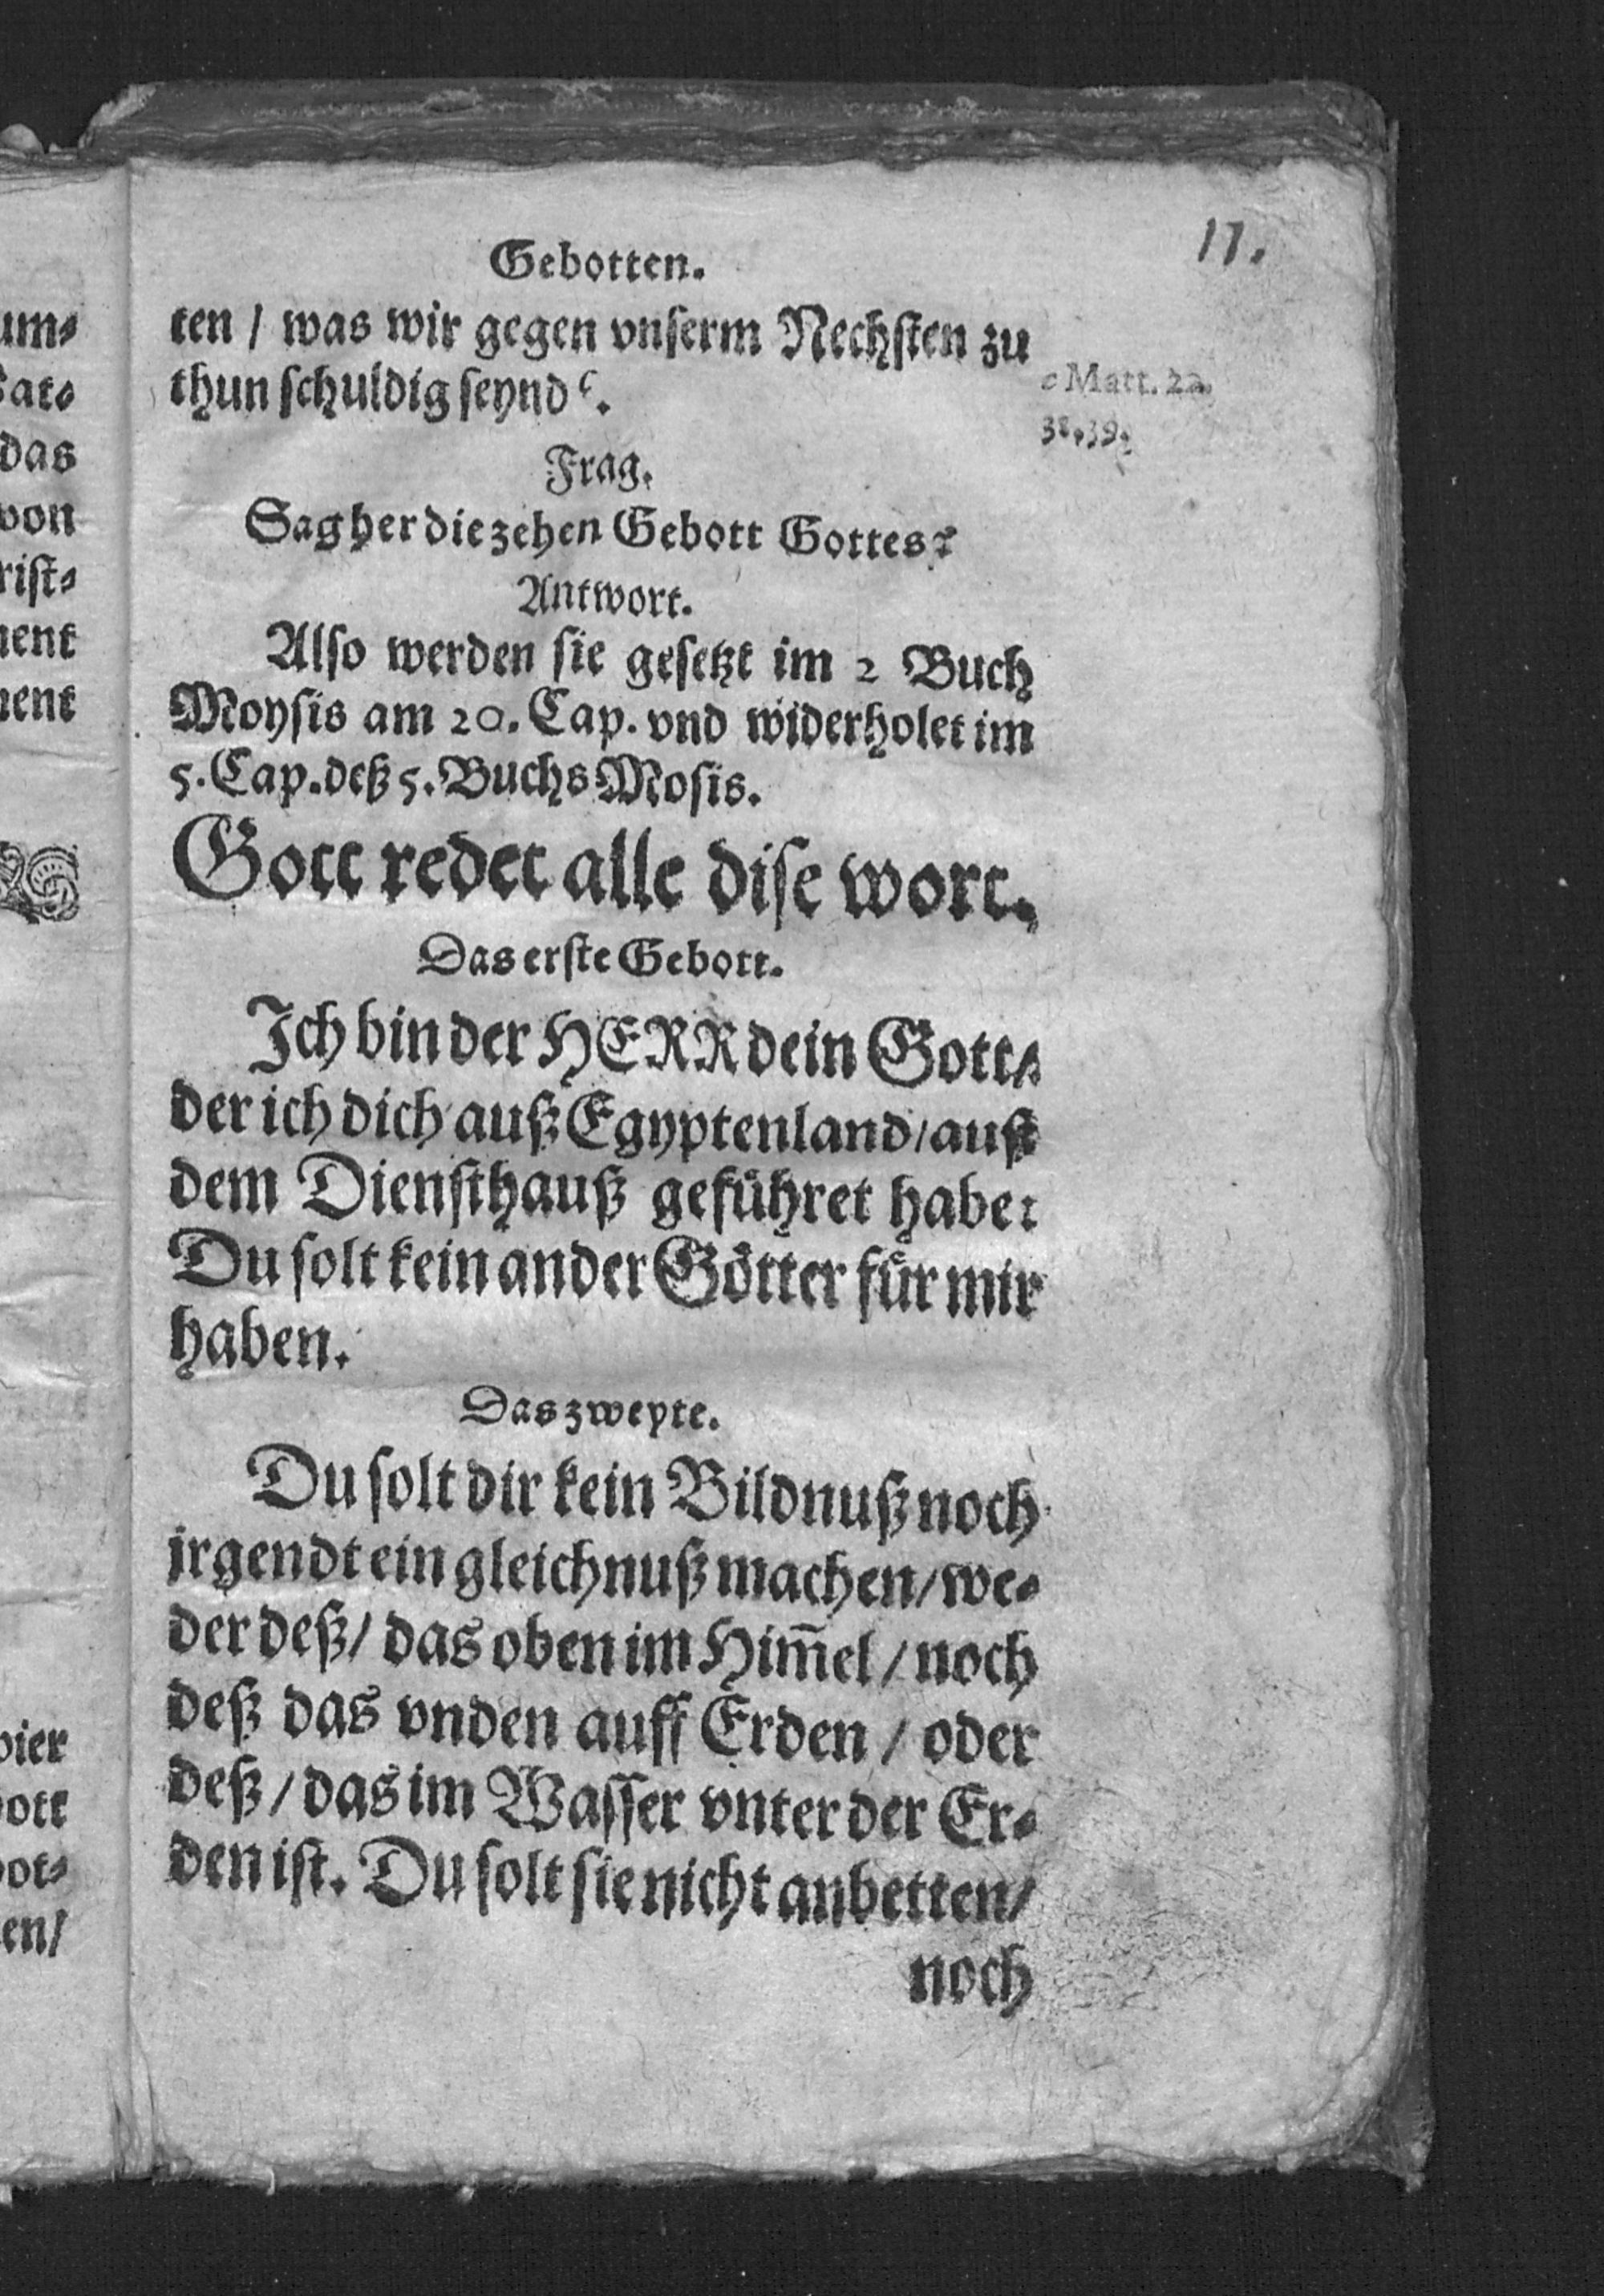 17.
Gebotten.
ten / was wir gegen vnserm Nechsten zu
thun schuldig seynd c.
c Matt. 22.
38,39.
Frag.
Sag her die zehen Gebott Gottes?
Antwort.
Also werden sie gesetzt im 2 Buch
Moysis am 20. Cap. vnd widerholet im
5. Cap. deß 5. Buchs Mosis.
Gott redet alle dise wort.
Das erste Gebott.
Ich bin der HERR dein Gott /
der ich dich auß Egyptenland / auß
dem Diensthauß geführet habe:
Du solt kein ander Götter für mir
haben.
Das zweyte.
Du solt dir kein Bildnuß noch
jrgendt ein gleichnuß machen / we-
der deß / das oben im Him̄el / noch
deß das vnden auff Erden / oder
deß / das im Wasser vnter der Er-
den ist. Du solt sie nicht anbetten /
noch
um-
das
von
rist-
ment
ment
vier
bott
bot-
en/